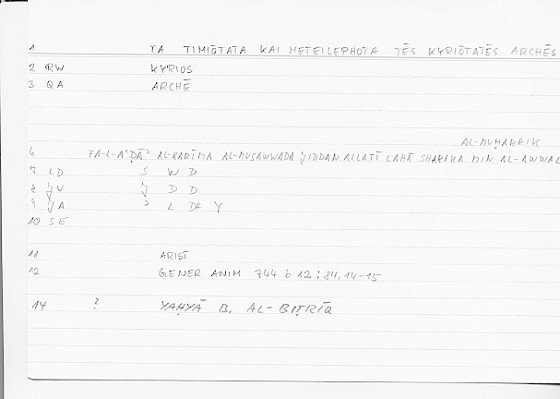 1 TA TIMIŌTATA KAI METEILEPHOTA TĒS KYRIŌTATĒS ARCHĒS
2 RW KYRIOS
3 QA ARCHĒ
AL-MUḤARRIK
6 FA-L-AʿḌĀʾ AL-KARĪMA AL-MUSAWWADA ǦIDDAN ALLATĪ LAHĀ SHARIKA MIN AL-AWWAL
7 LD S W D
8 ǦV Ǧ D D
9 ǦA ʾ L Y
10 SE
11 ARIST
12 GENER ANIM 744 b 12 : 84, 14-15
14 ? YAḤYĀ B. AL-BIṬRĪQ